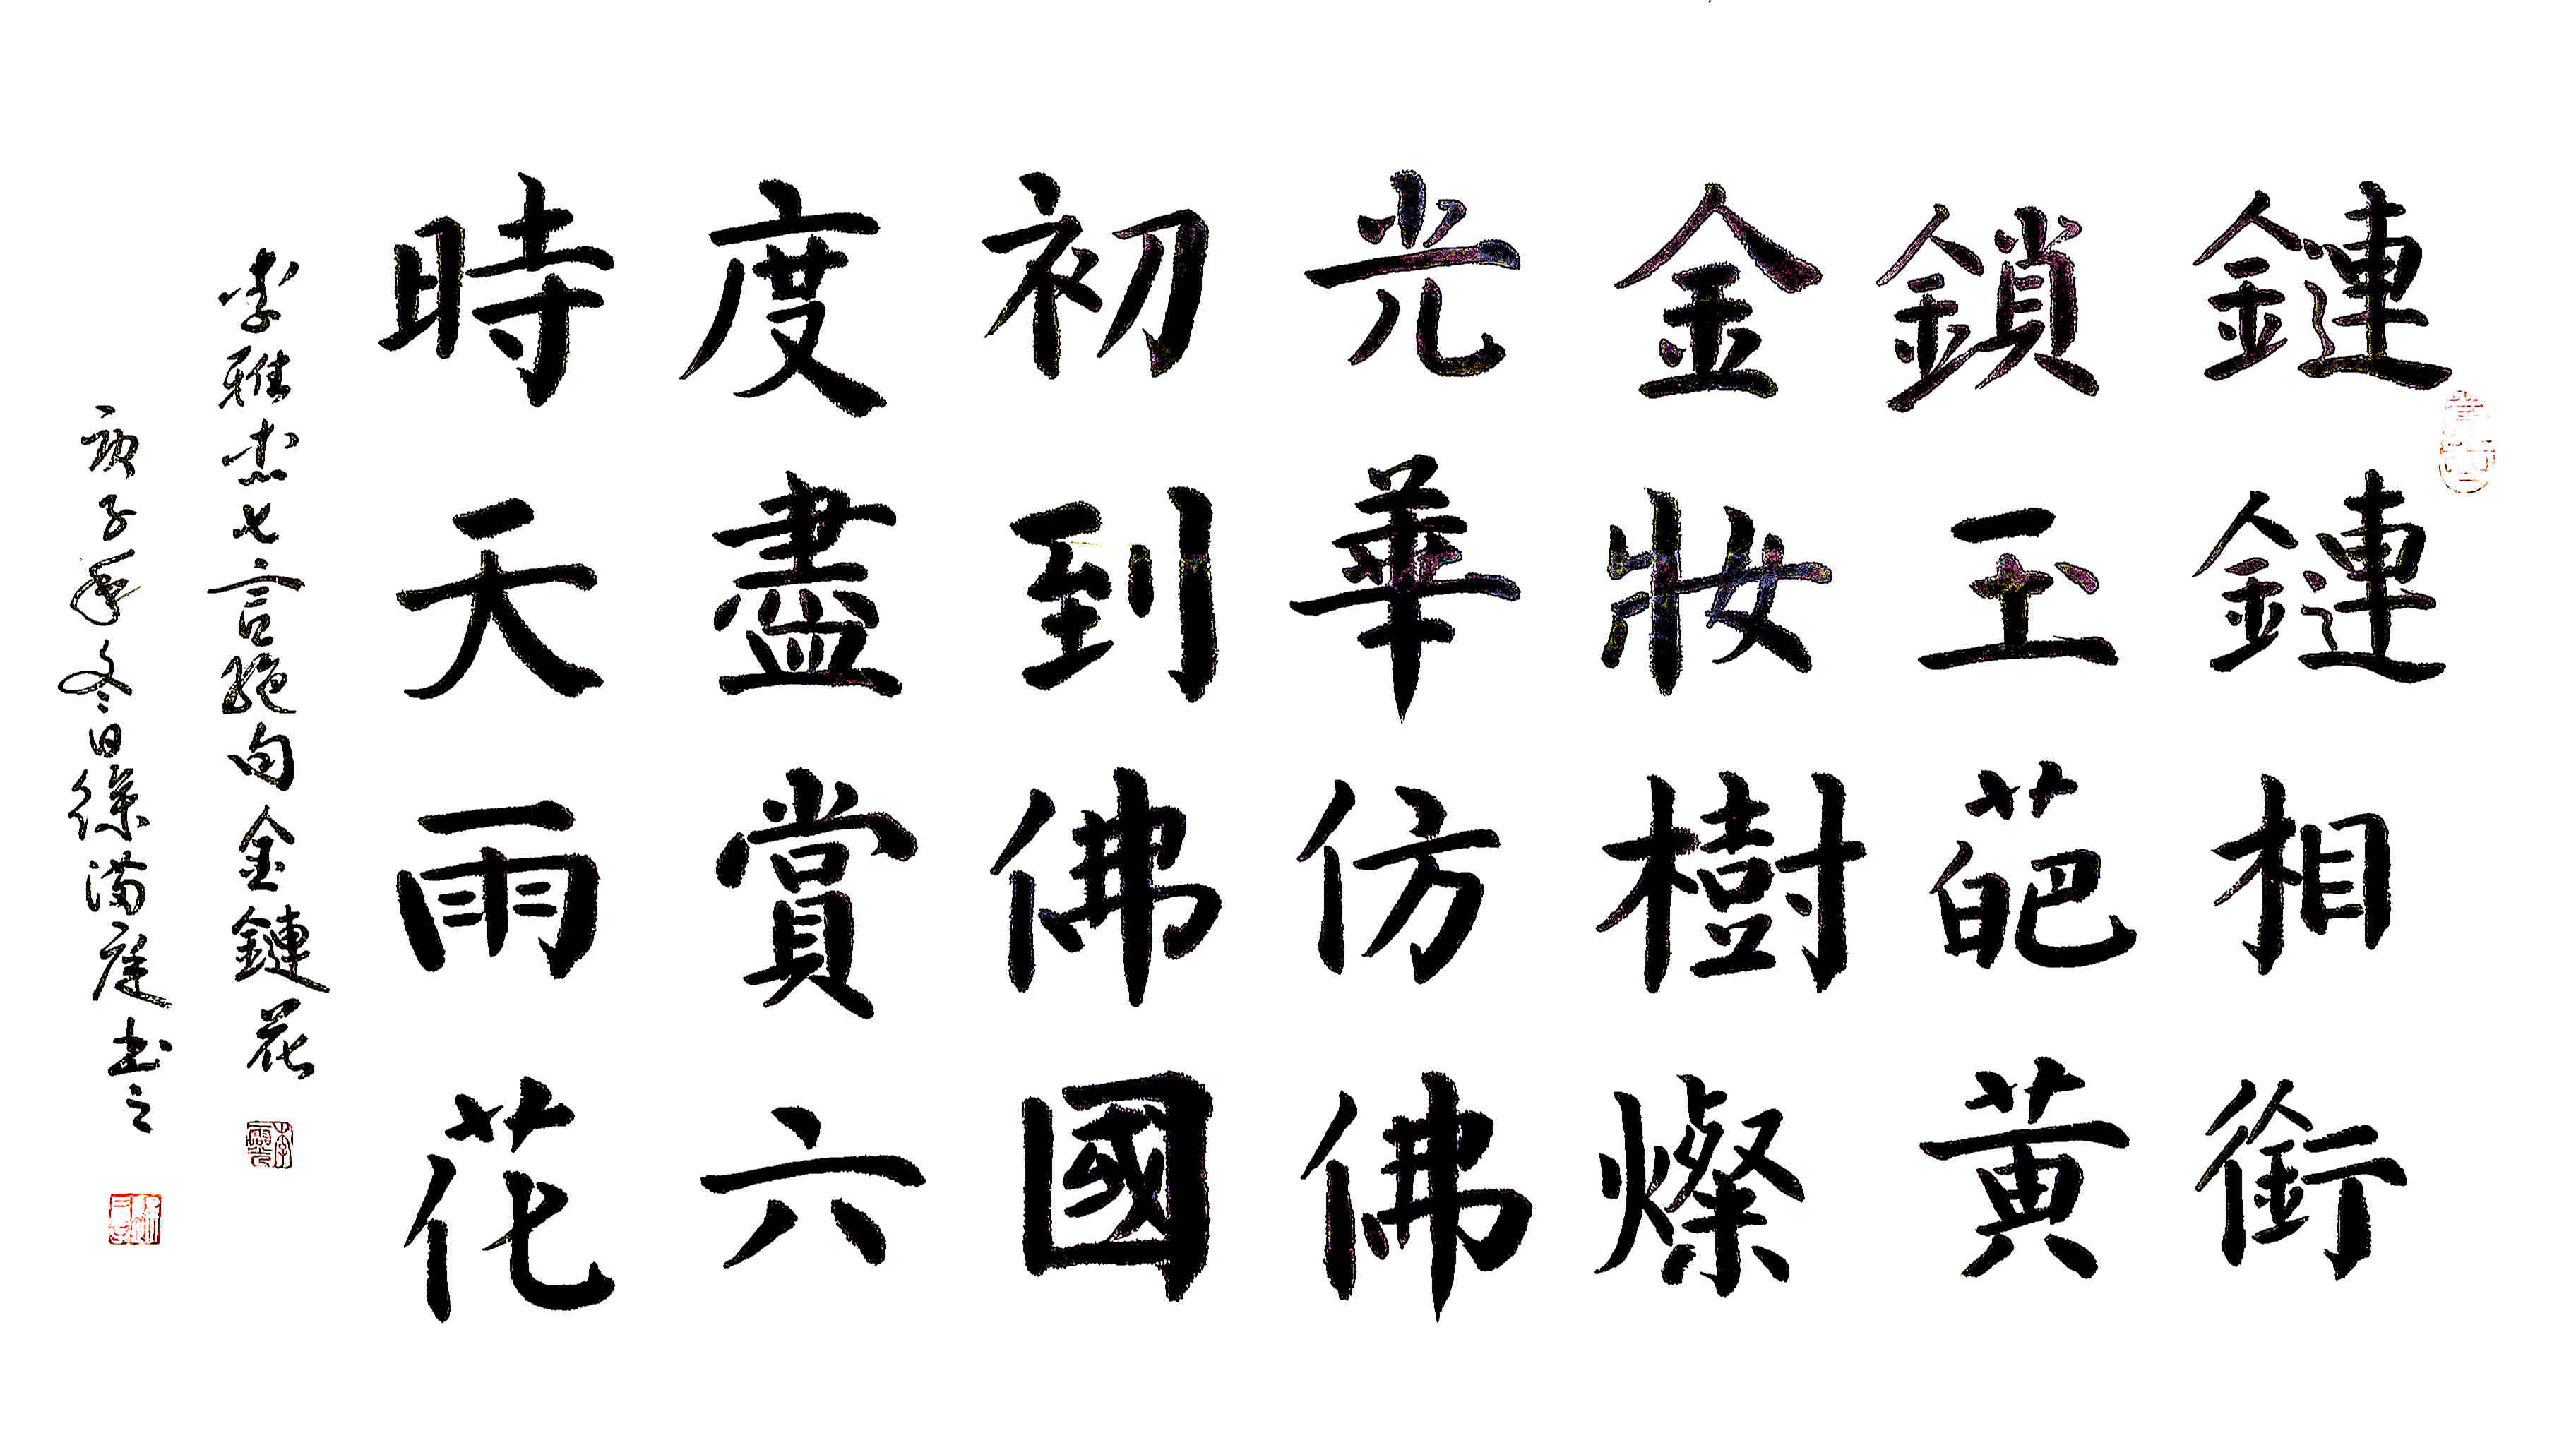 鏈鏈相銜
鎖玉葩黄
金妝樹燦
光華仿佛
初到佛國
度盡賞六
時天雨花
李雅杰七言絶句金鏈花
庚子年冬日徐滿庭书之